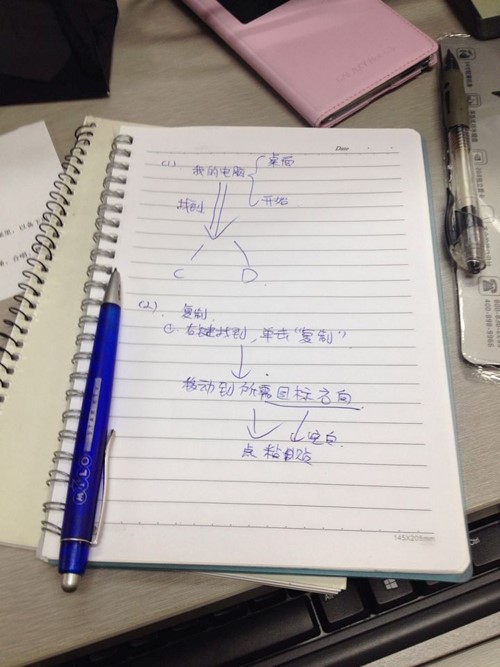 Date
(1)
我的电脑
桌面
开始
找到
C
D
(2).
复制.
① 右键找到,单击"复制"
移动到所需目标方向
空白.
点粘贴
145X205mm
MILO
400-898-9988